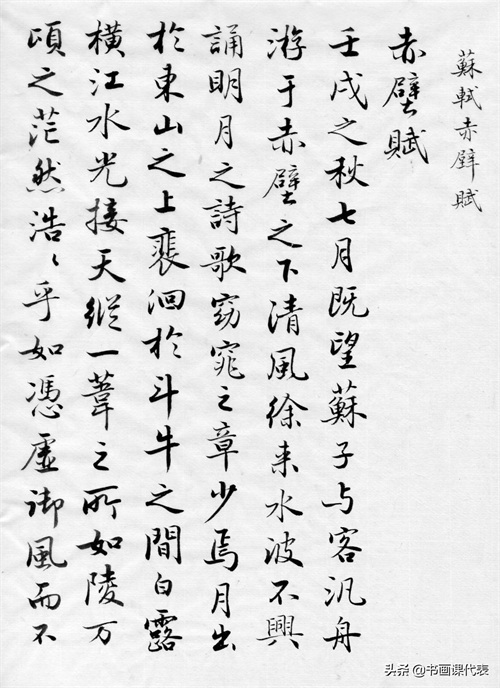 蘇軾赤壁賦
赤壁賦
壬戌之秋七月既望蘇子与客汎舟
游于赤壁之下清風徐来水波不興
誦明月之詩歌窈窕之章少焉月出
於東山之上裵洄於斗牛之間白露
橫江水光接天縱一葦之所如陵万
頃之茫然浩〻乎如憑虛御風而不
头条 @书画课代表